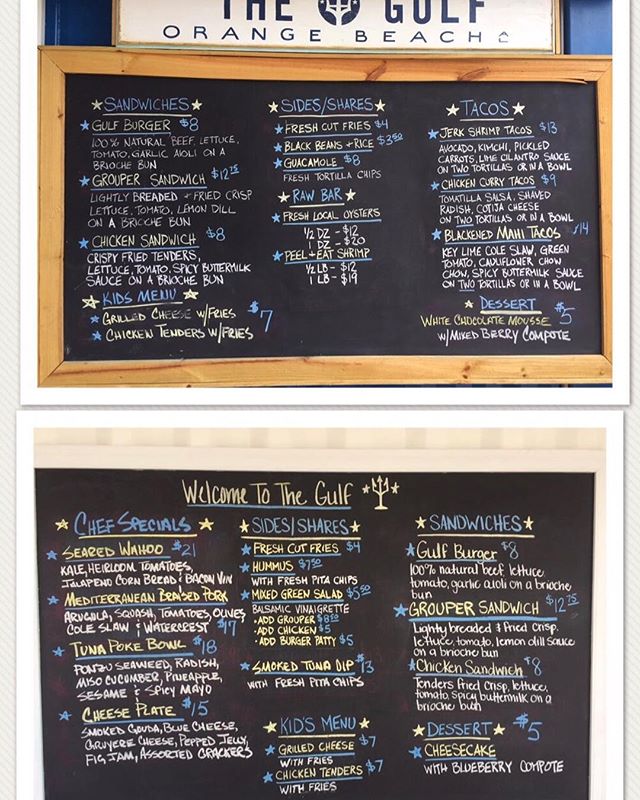 THE GULF
ORANGE BEACH
SANDWICHES
GULF BURGER $8
100% NATURAL BEEF, LETTUCE,
TOMATO, GARLIC AIOLI ON A
BRIOCHE BUN
GROUPER SANDWICH $12.75
LIGHTLY BREADED + FRIED CRISP
LETTUCE, TOMATO, LEMON DILL
ON A BRIOCHE BUN
CHICKEN SANDWICH $8
CRISPY FRIED TENDERS,
LETTUCE, TOMATO, SPICY BUTTERMILK
SAUCE ON A BRIOCHE BUN
KIDS MENU
GRILLED CHEESE W/FRIES $7
CHICKEN TENDERS W/FRIES
SIDES/SHARES
FRESH CUT FRIES $4
BLACK BEANS + RICE $3.50
GUACAMOLE $8
FRESH TORTILLA CHIPS
RAW BAR
FRESH LOCAL OYSTERS
1/2 DZ - $12
1 DZ - $20
PEEL + EAT SHRIMP
1/2 LB - $12
1 LB - $19
TACOS
JERK SHRIMP TACOS $13
AVOCADO, KIMCHI, PICKLED
CARROTS, LIME CILANTRO SAUCE
ON TWO TORTILLAS OR IN A BOWL
CHICKEN CURRY TACOS $9
TOMATILLA SALSA, SHAVED
RADISH, COTIJA CHEESE
ON TWO TORTILLAS OR IN A BOWL
BLACKENED MAHI TACOS $14
KEY LIME COLE SLAW, GREEN
TOMATO, CAULIFLOWER CHOW
CHOW, SPICY BUTTERMILK SAUCE
ON TWO TORTILLAS OR IN A BOWL
DESSERT $5
WHITE CHOCOLATE MOUSSE
W/MIXED BERRY COMPOTE
Welcome To The Gulf
CHEF SPECIALS
SEARED WAHOO $21
KALE, HEIRLOOM TOMATOES,
JALAPENO CORN BREAD & BACON VIN
MEDITERRANEAN BRAISED PORK
ARUGULA, SQUASH, TOMATOES, OLIVES,
COLE SLAW & WATERCREST $17
TUNA POKE BOWL $18
PONZU SEAWEED, RADISH,
MISO CUCUMBER, PINEAPPLE,
SESAME & SPICY MAYO
CHEESE PLATE $15
SMOKED GOUDA, BLUE CHEESE,
GRUYERE CHEESE, PEPPED JELLY,
FIG, JAM, ASSORTED CRACKERS
SIDES/SHARES
FRESH CUT FRIES $4
HUMMUS $7.50
WITH FRESH PITA CHIPS
MIXED GREEN SALAD $5.50
BALSAMIC VINAIGRETTE
• ADD GROUPER $8.50
• ADD CHICKEN $5
• ADD BURGER PATTY $5
SMOKED TUNA DIP $13
WITH FRESH PITA CHIPS
KID'S MENU
GRILLED CHEESE $7
WITH FRIES
CHICKEN TENDERS $7
WITH FRIES
SANDWICHES
Gulf Burger $8
100% natural beef lettuce
tomato, garlic aioli on a brioche
bun
GROUPER SANDWICH $12.75
Lightly breaded & fried crisp,
lettuce tomato, lemon dill sauce
on a brioche bun
Chicken Sandwich $8
Tenders fried crisp, lettuce,
tomato spicy buttermilk on a
brioche bush
DESSERT $5
CHEESECAKE
WITH BLUEBERRY COMPOTE